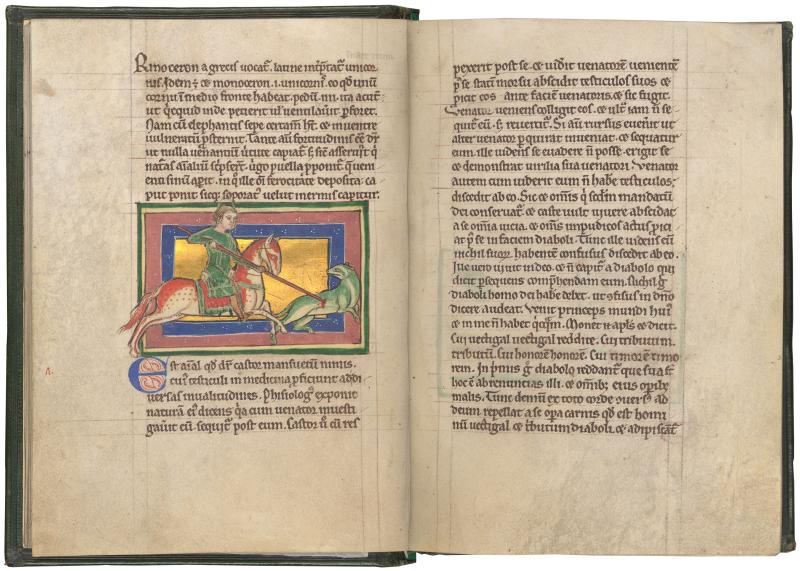 Rinoceron a grecis vocat̄. latine int̄pratat̄ unicor
nis. Idem ⁊ ce monoceron .i. unicornis. eo qd̓ unū
cornu ī medio fronte habeat pedū .iiii. ita acutū
ut q̄cquid inde petierit ul̓ ventilaūit p̱foret.
Nam cū elephantis sepe certam̄ hēt. ce in ventre
vulneratū p̱sternit. Tante aūt fortitudinis ēē dr̄
ut nulla venantiū ūtute capiat̄.
naturas aīaliū scp̱ser̄t. ūgo puella p̱ponit̄ q̄ veni
enti sinū ap̱it. in q̄ ille oī ferocitate deposita ca
put ponit sicq; soporat̓ velut inermis capitur.
Est aīal qd̓ dr̄ castor mansuetū nimis.
cui̓ testiculi in medicina p̱ficiunt ad di
versas invalitudines. Phisiolog̓ exponit
naturā ei̓ dicens q̄a cum venator investi
gaūit eū. sequit̄ post eum. Castor ū cū res
pexerit post se. ce vidit venatorē venientē
p̱ se statī morsu abscidit testiculos suos ce
p̱icit eos ante faciē venatoris. ce sic fugit.
Venator veniens colligit eos. ce ult̓ iam n̄ se
quit̄ eū. s; revertit̄. Si aūt rursus evenerit ut
alter venator p̱quirat inveniat. ce sequatur
eum. ille videns se evadere n̄ posse. erigit se
ce demonstrat virilia sua venatori. Venator
autem cum viderit eum n̄ habē testiculos;
discedit ab eo. Sic ce omīs q̄ scdm̄ mandatū
dei conservat̄. ce caste vult vivere abscidat
a se omīa vicia. ce omīs impudicos act̓ p̱iciat
at p̱ se in faciem diaboli. Tunc ille videns eū
nichil suor̄ habentē confusus discedit ab eo.
Ille vero vivit in deo. ce n̄ capit̄ a diabolo qui
dicit p̱sequens comp̱hendam eum. Nichil g̊
diaboli homo dei habē debet. ut 9fisus in dn̄o
dicere audeat. Venit princeps mundi hui̓
ce in me n̄ habet q̄cq̄m. Monet ce ap̱ls ce dicit.
Cui vectigal vectigal reddite. Cui tributum.
tributū. Cui honorē honorē. Cui timorē timo
rem. In p̱mis g̊ diabolo reddant̄ que sua st̄
hoc ē abrenuncias illi. ce omīb; eius opib;
malis. Tunc demū ex toto corde 9versus ad
deum repellat a se opa carnis qd̓ est homi
nū vectigal ce t̓butum diaboli. ce adipiscat̄